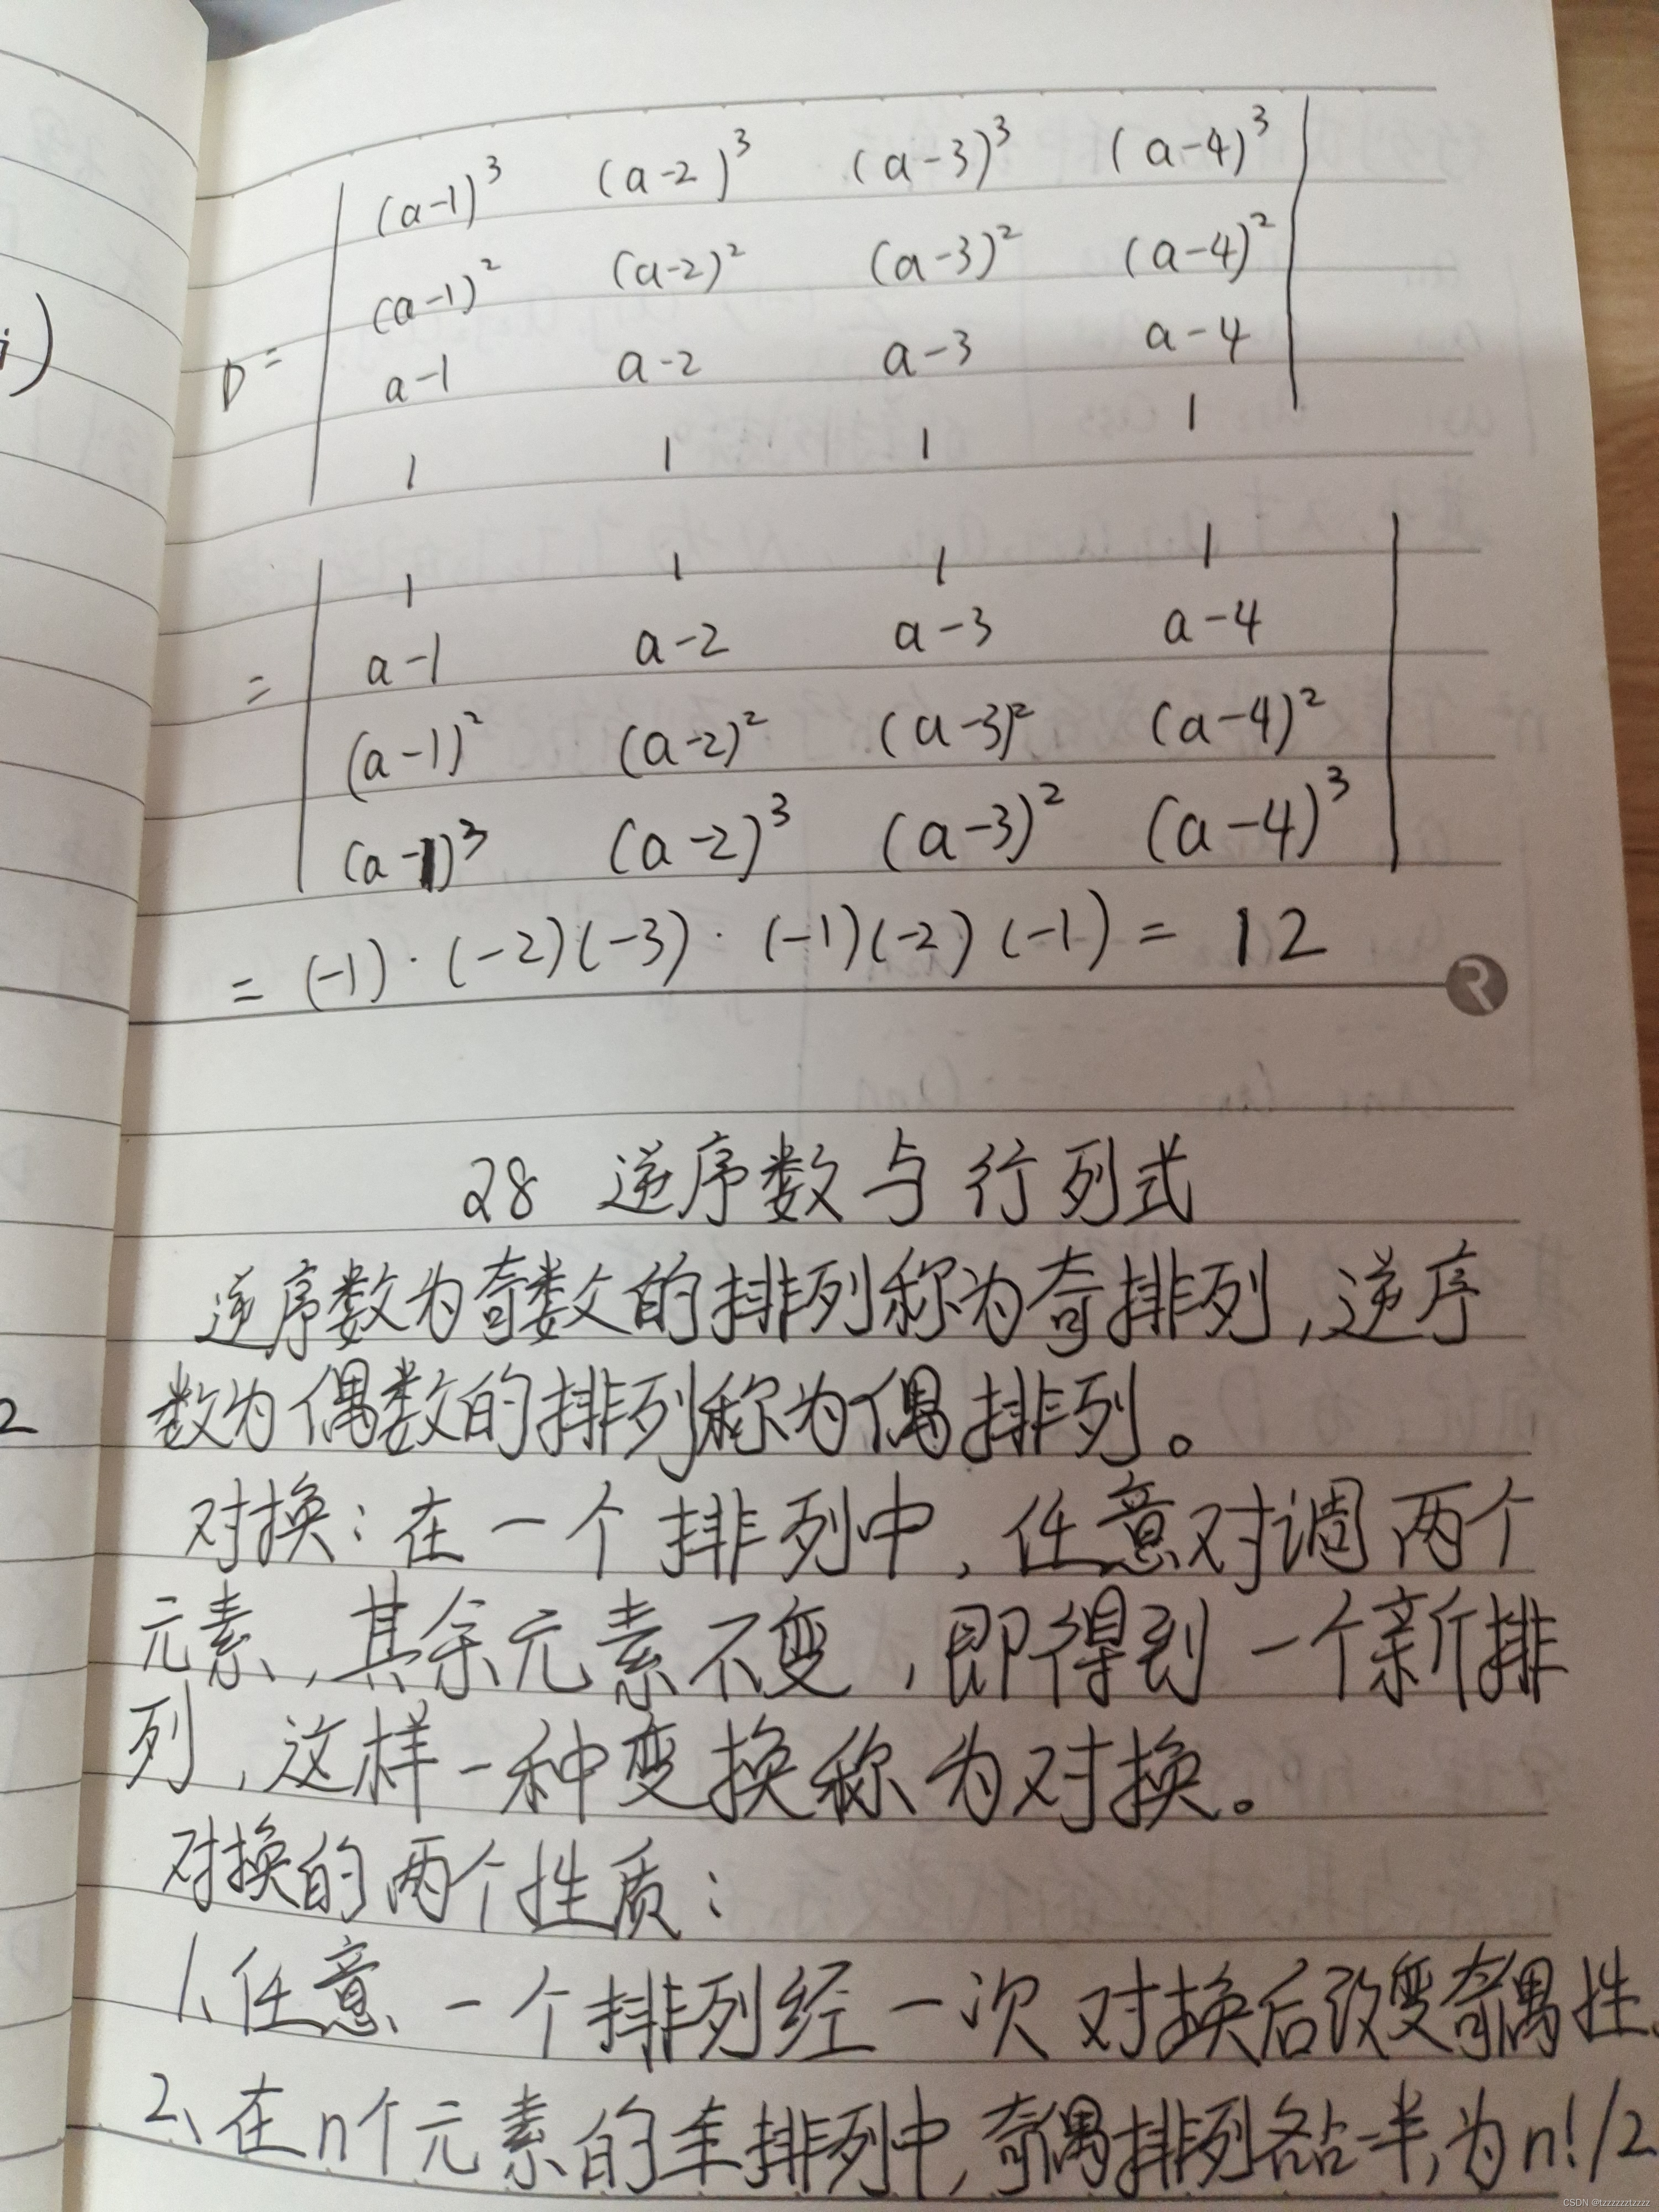 i)
(a-1)³ (a-2)³ (a-3)³ (a-4)³
(a-1)² (a-2)² (a-3)² (a-4)²
D= a-1 a-2 a-3 a-4
1 1 1 1
1 1 1 1
= a-1 a-2 a-3 a-4
(a-1)² (a-2)² (a-3)² (a-4)²
(a-1)³ (a-2)³ (a-3)² (a-4)³
= (-1)·(-2)(-3)·(-1)(-2)(-1) = 12
R
28 逆序数与行列式
逆序数为奇数的排列称为奇排列,逆序
2
数为偶数的排列称为偶排列。
对换:在一个排列中,任意对调两个
元素,其余元素不变,即得到一个新排
列,这样一种变换称为对换。
对换的两个性质:
1、任意一个排列经一次对换后改变奇偶性.
2、在n个元素的全排列中,奇偶排列各占一半,为n!/2
CSDN @tzzzzzztzzzz